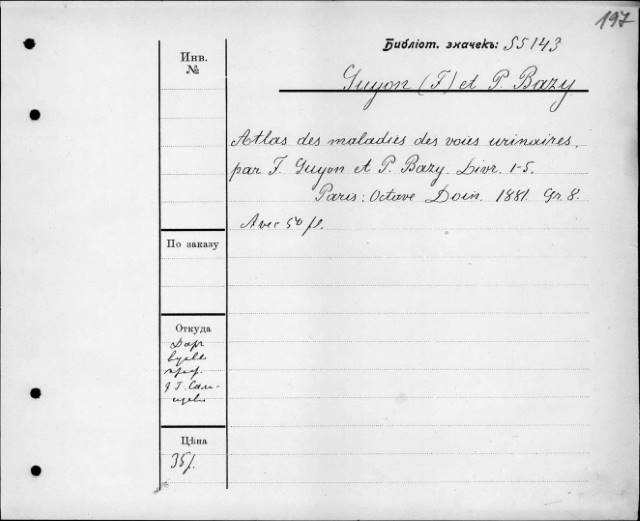 197
Библіот. значекъ: 55143
Инв.
№
Guyon (F) et P. Bazy
Atlas des maladies des voies urinaires,
par F. Guyon et P. Bazy. Livr. 1-5.
Paris: Octave Doin. 1881. Gr. 8.
Avec 50 pl.
По заказу
Откуда
Даръ
вдовы
проф.
Цѣна
35 f.